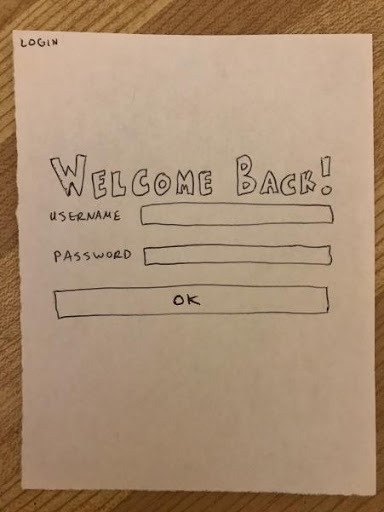 LOGIN
WELCOME BACK!
USERNAME
PASSWORD
OK